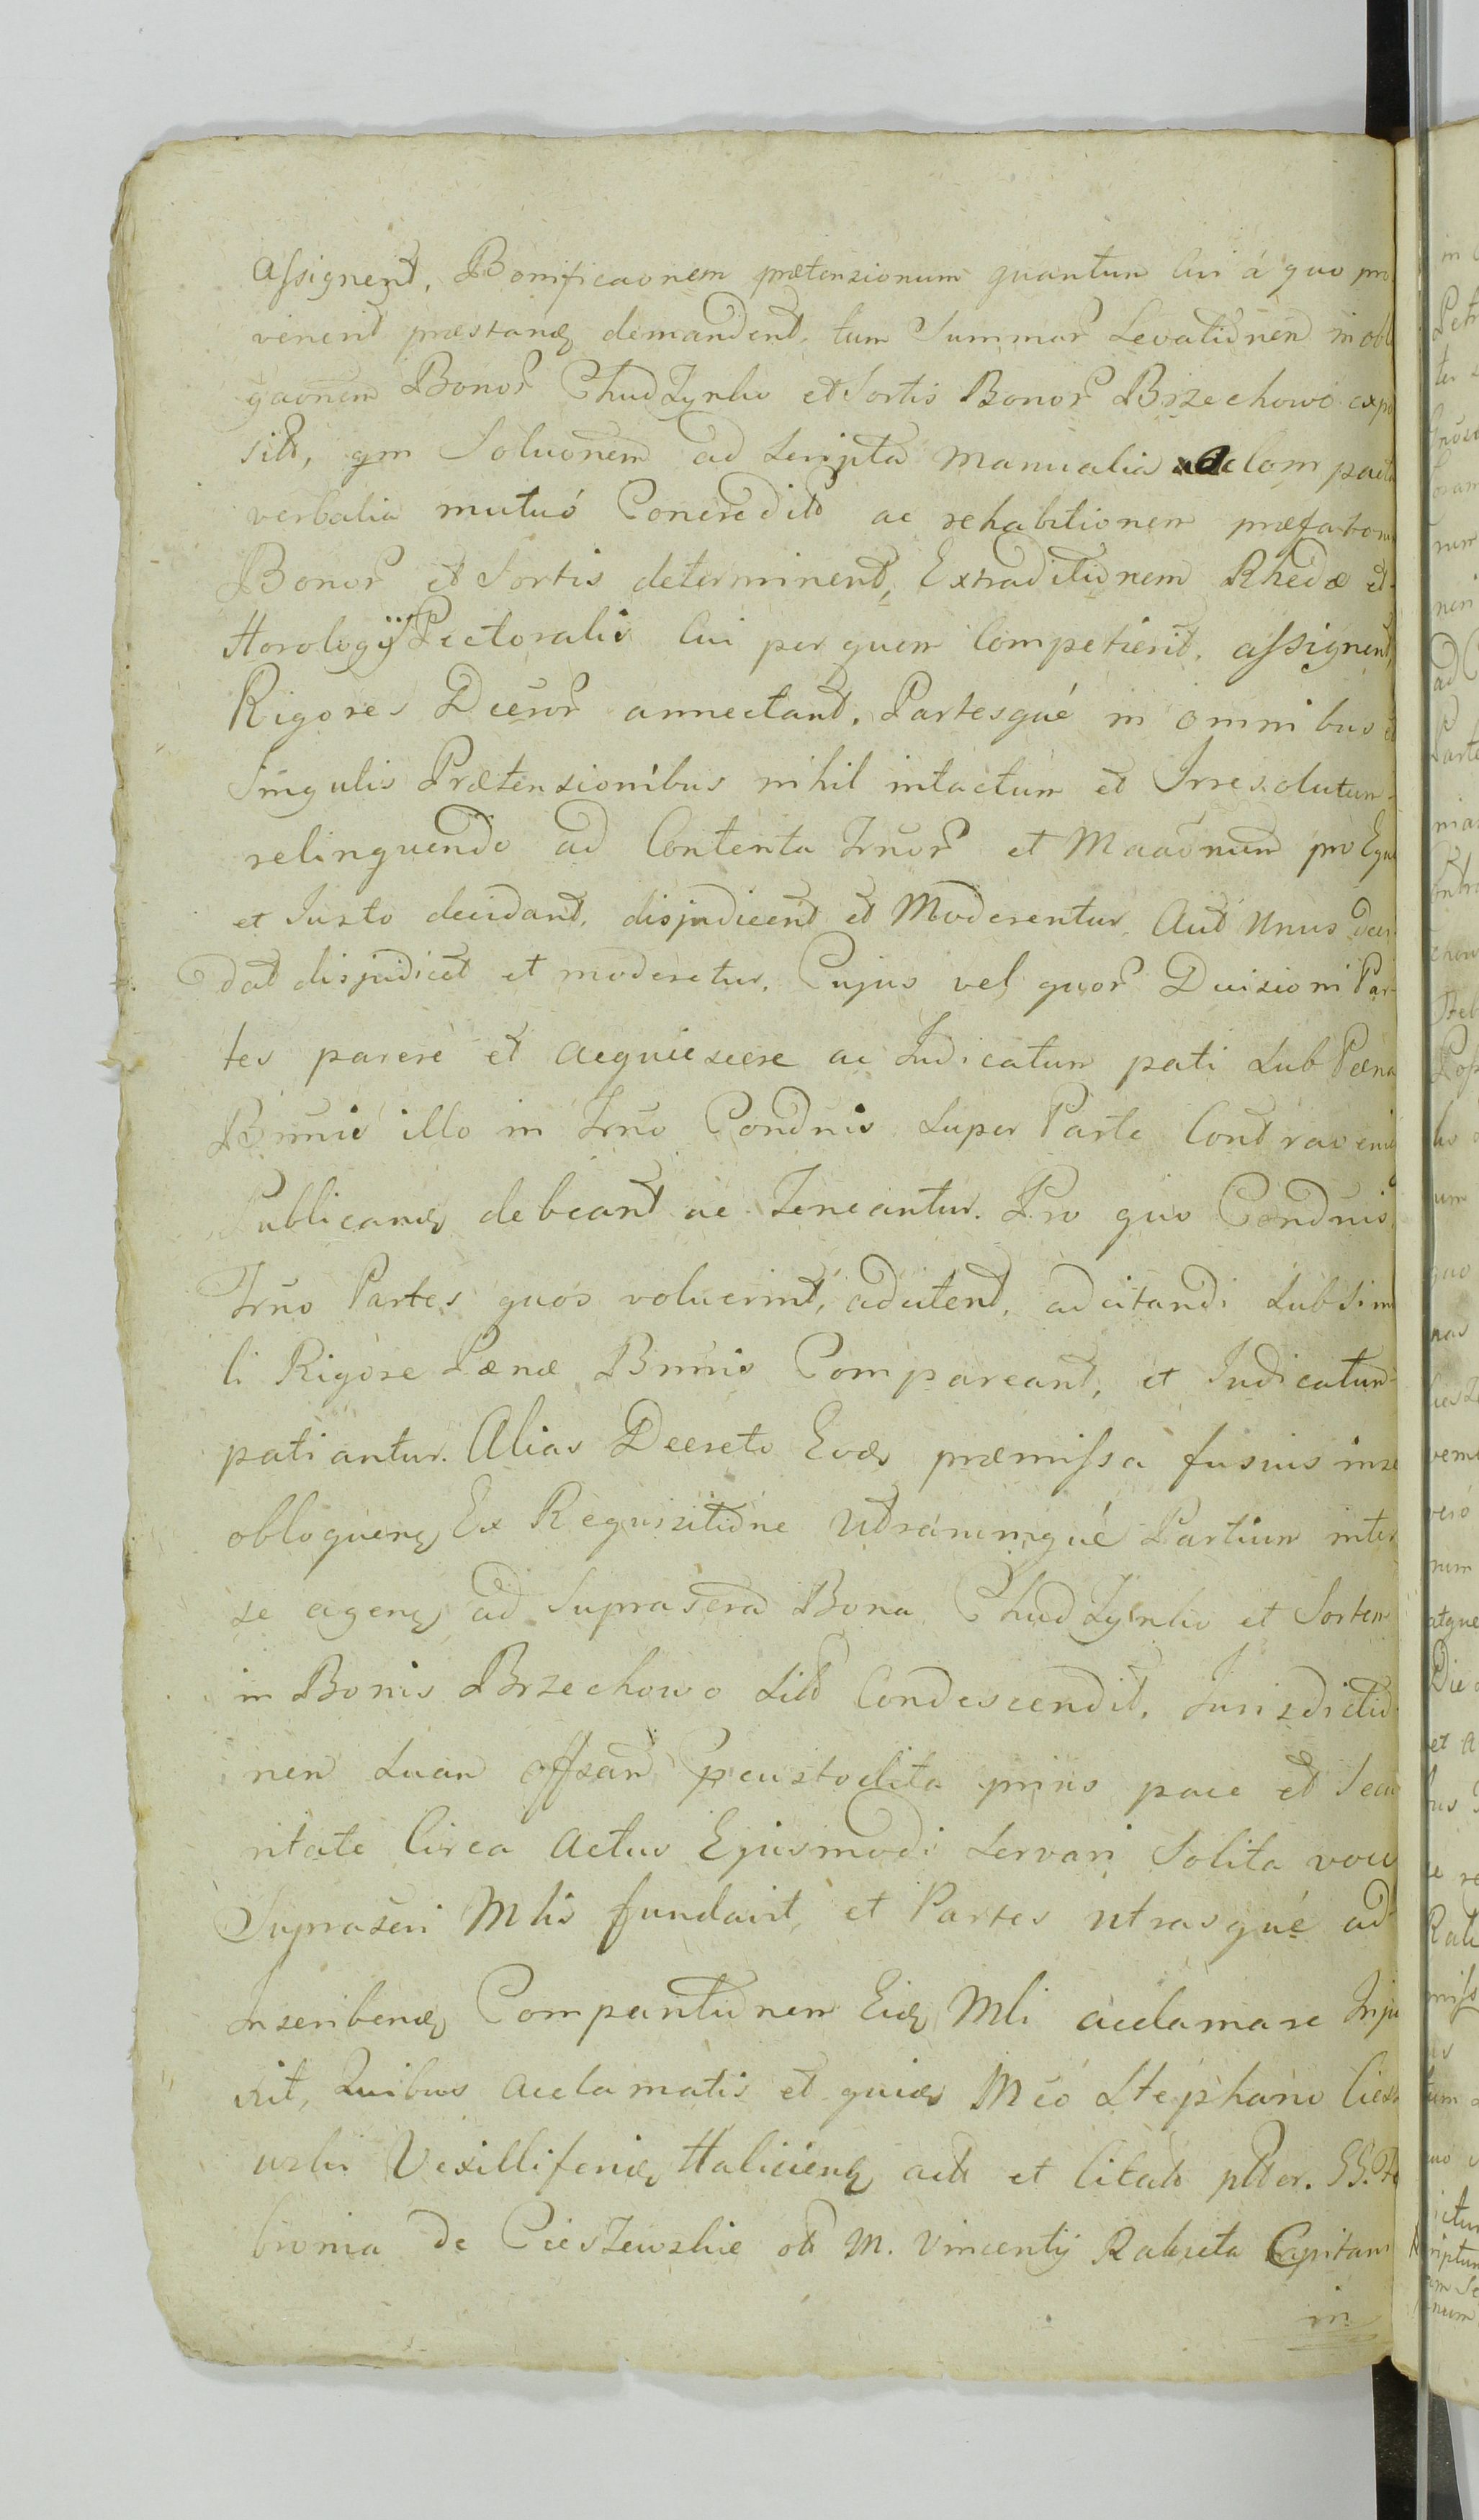 assignent, Bonificaonem prætensionum quantum Cui á quo pro
venerit præstanda demandent, tum Summar Levationem in obli
gaonem Bonor Chudzynko et Sortis Bonor Brzechowo expo
sit, qm Soluonem ad Scripta Manualia ac lom pacta
verbalia mutuó Concredit ac rehabitionem præfator
Bonor et Sortis determinent, Extraditionem Rhedæ et
Horologij Pectoralis Cui per quem Competierit, assignent,
Rigores Decror annectant, Partesqué in omnibus et
Singulis Prætensionibus nihil intactum et Irresolutum
relinquendo ad Contenta Trnor et Maaonum pro Equo
et Iusto decidant, disjudicent et Moderentur, Aut Unus deci
dat disjudicet et moderetur, Cujus vel quor Decisioni Par-
tes parere et acquiescere ac Iudicatum pati Sub Pæna
Bnnis illo in Trno Condnis Super Parte Contraveni
Publicanda debeant ac Teneantur. Pro quo Condnis
Trno Partes quos voluerint, adcitent, adcitandi Sub Simi
li Rigore Pænæ Bnnis Compareant, et Iudicatum
patiantur. Alias Decreto Eod præmissa fusius inse
obloquen Ex Requisitione Utrarumqué Partium inter
se agen ad Suprascra Bona Chudzynko et Sortem
in Bonis Brzechowo Sit Condescendit, Jurisdictio
nem Suam Offsam Pcustodita prius pace et Secu
ritate Circa Actus Ejusmodi Servari Solita voce
Suprascri Mlis fundavit, et Partes utrasqué ad
Inscribend Comparitionem Eid Mli acclamare Inju
xit, Quibus acclamatis et quid Mco Stephano Ciesz
uski Vexillifero Haliciens act et Citat ptter. GG. Fa
bronia de Cieszewskie ol M. Vincentij Rakseta Capitan
in